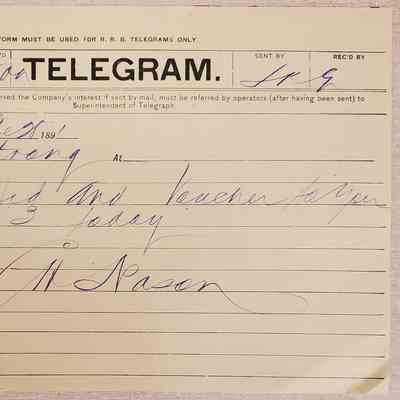 FORM MUST BE USED FOR R. R. B. TELEGRAMS ONLY.
TELEGRAM. SENT BY REC'D BY
rred the Company's interest if sent by mail, must be referred by operators (after having been sent) to
Superintendent of Telegraph.
1891
trong At
and Voucher to you
3 today
H Nason